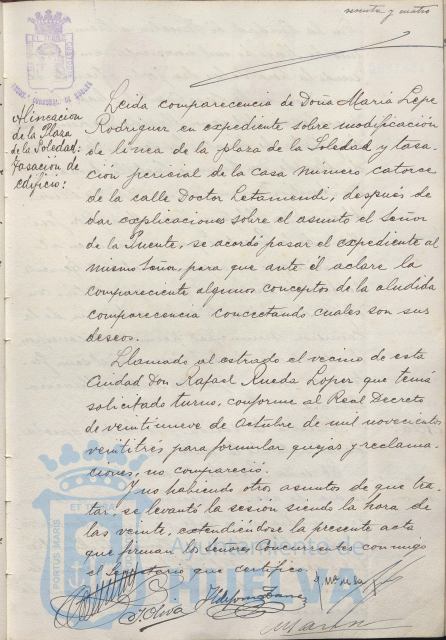 sesenta y cuatro
Alineacion
de la Plaza
de la Soledad;
tasación de
edificio:
Leida comparecencia de Doña María Lepe
Rodriguez en expediente sobre modificación
de linea de la plaza de la Soledad y tasa-
ción pericial de la casa número catorce
de la calle Doctor Letamendi, después de
dar explicaciones sobre el asunto el señor
de la Puente, se acordó pasar el expediente al
mismo Señor, para que ante él aclare la
compareciente algunos conceptos de la aludida
comparecencia concretando cuales son sus
deseos.
Llamado al estrado el vecino de esta
Ciudad Don Rafael Rueda Lopez que tenia
solicitado turno, conforme al Real Decreto
de veintinueve de Octubre de mil novecientos
veintitrés para formular quejas y reclama-
ciones, no compareció.
Y no habiendo otros asuntos de que tra-
tar, se levantó la sesión siendo la hora de
las veinte, extendiéndose la presente acta
que firman los señores Concurrentes conmigo
el Secretario que certifico.
Oliva
PORTUS MARIS
Ayuntamiento de
HUELVA